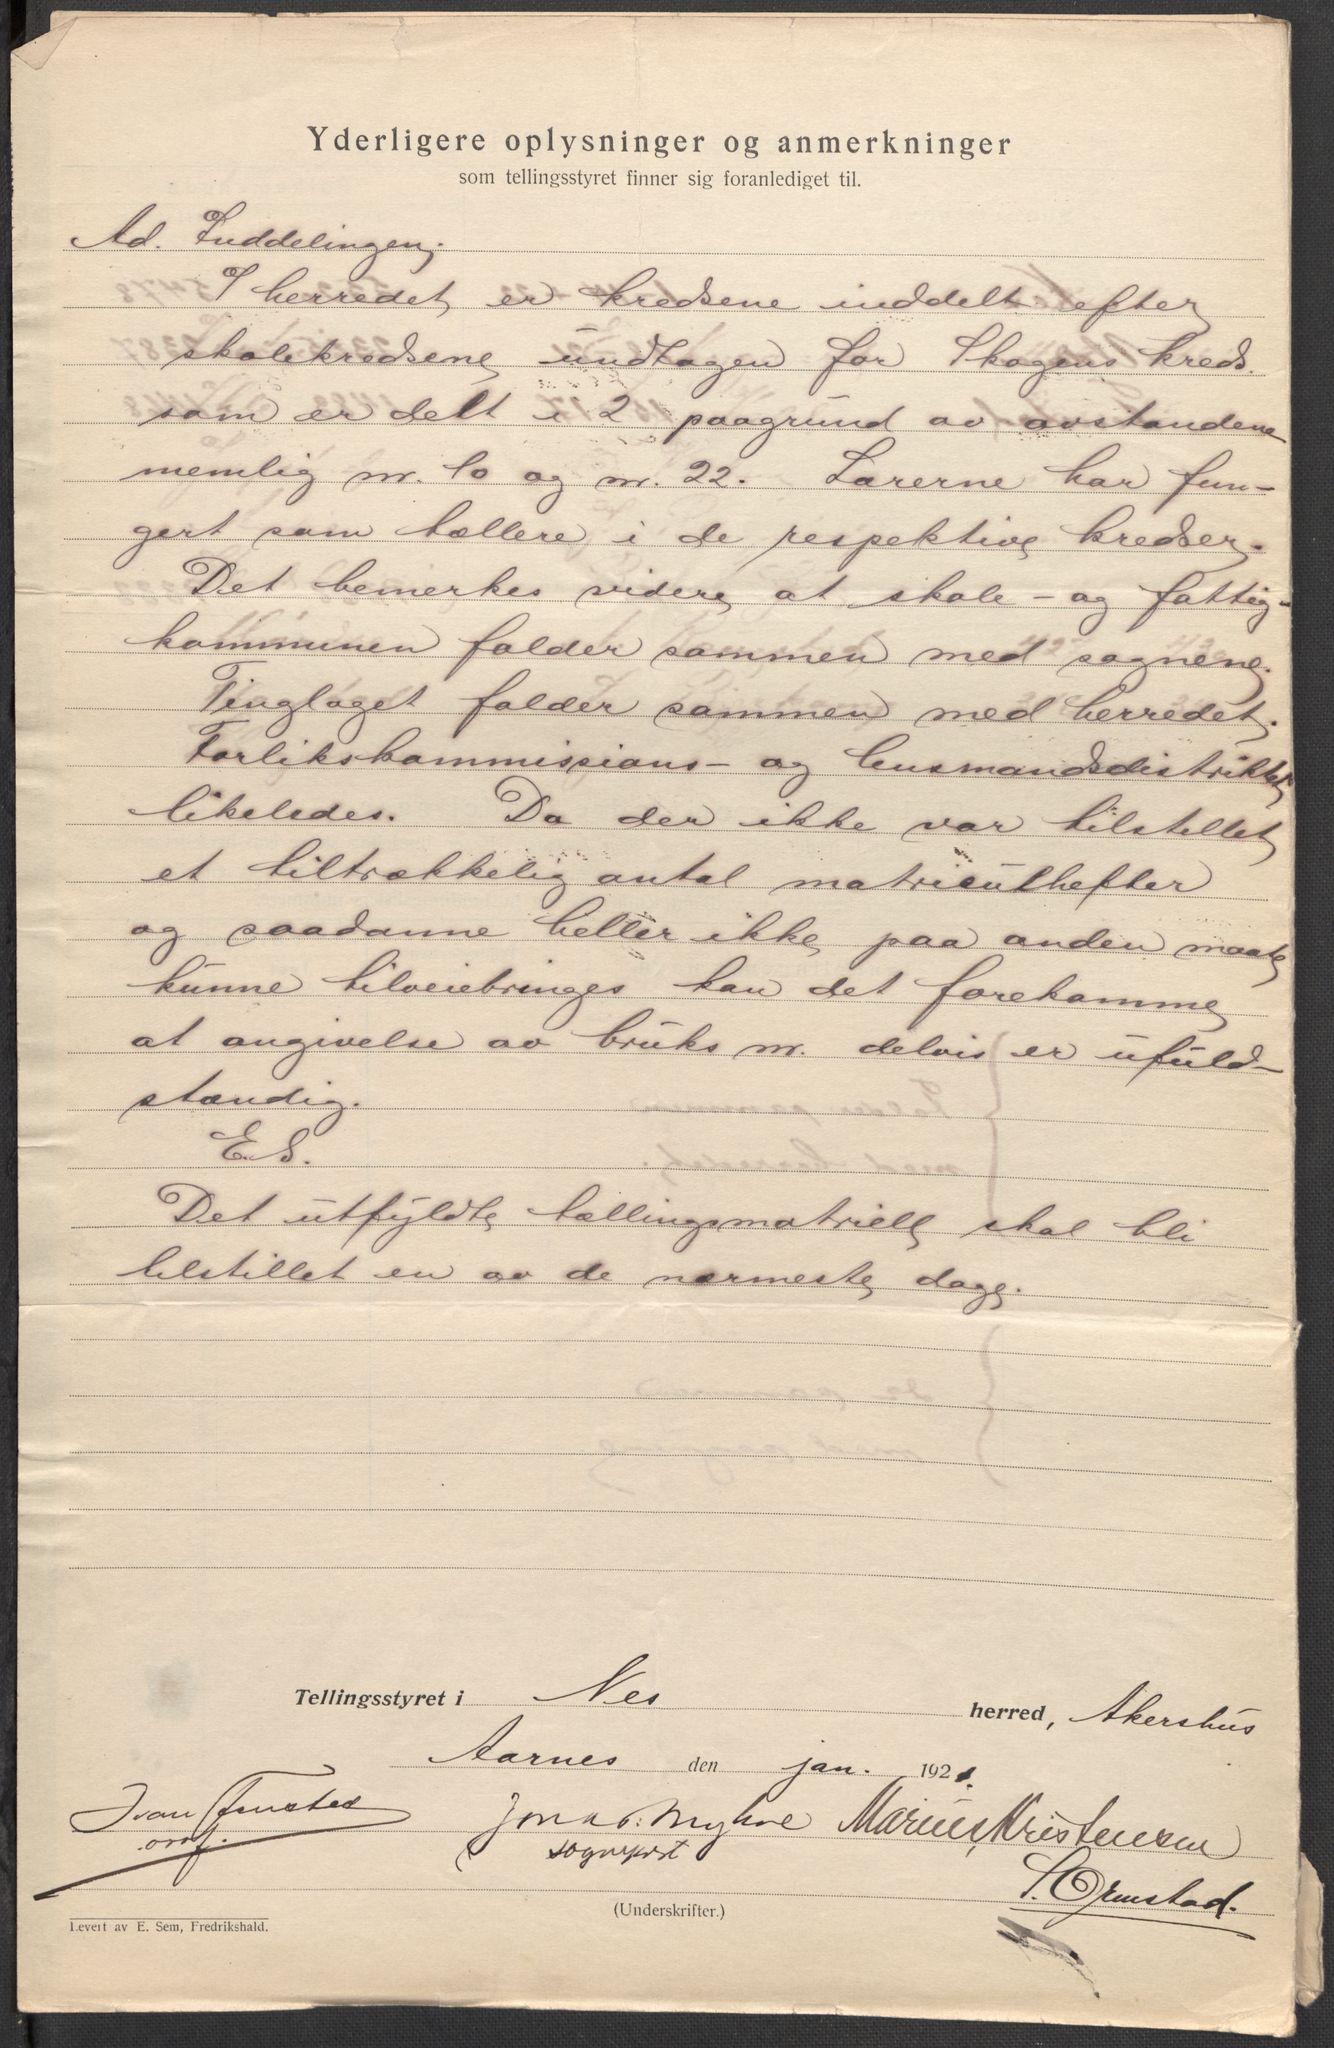 Yderligere oplysninger og anmerkninger
som tellingsstyret finner sig foranlediget til.
Ad. Inddelingen.
I herredet er kredsene inddelt efter
skolekredsene undtagen for Skogens kreds.
som er delt i 2 paagrund av avstandene
nemlig nr. 10 og nr. 22. Lærerne har fun-
gert som tællere i de respektive kredser.
Det bemerkes videre at skole- og fattig-
kommunen falder sammen med sognene.
Tinglaget falder sammen med herredet.
Forlikskommissions- og lensmandsdistriktet
likeledes. Da der ikke var tilstillet
et tiltrækkelig antal matriculhefter
og saadanne heller ikke paa anden maate
kunne tilveiebringes kan det forekomme
at angivelse av bruks nr. delvis er ufuld-
stændig.
E.S.
Det utfyldte tællingsmatriell skal bli
tilstillet en av de nærmeste dage.
Tellingsstyret i Nes herred, Akershus
Aarnes den jan. 1921.
Marius Kristensen
sogneprest
ordf.
S. Ormstad.
(Underskrifter.)
Levert av E. Sem, Fredrikshald.